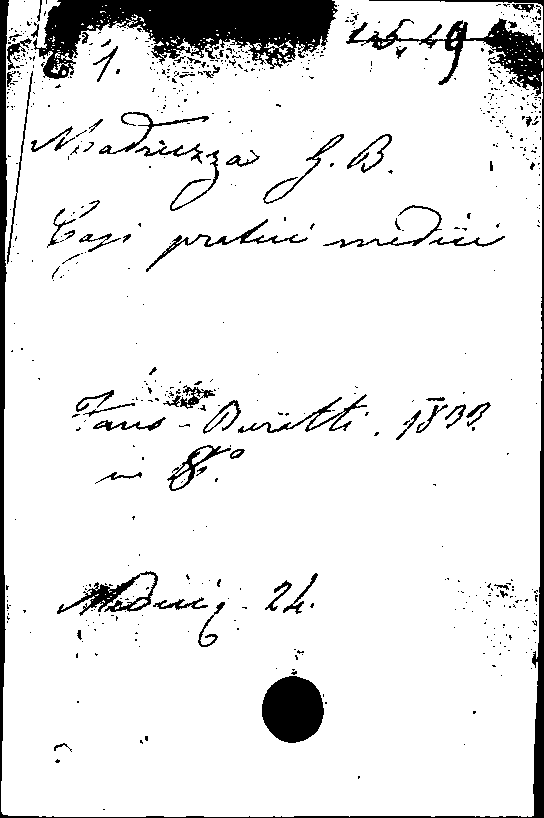 1.
Madruzza G. B.
Casi pratici medici
Fano - Buratti. 1833
in 8.°
Medicin. 24.